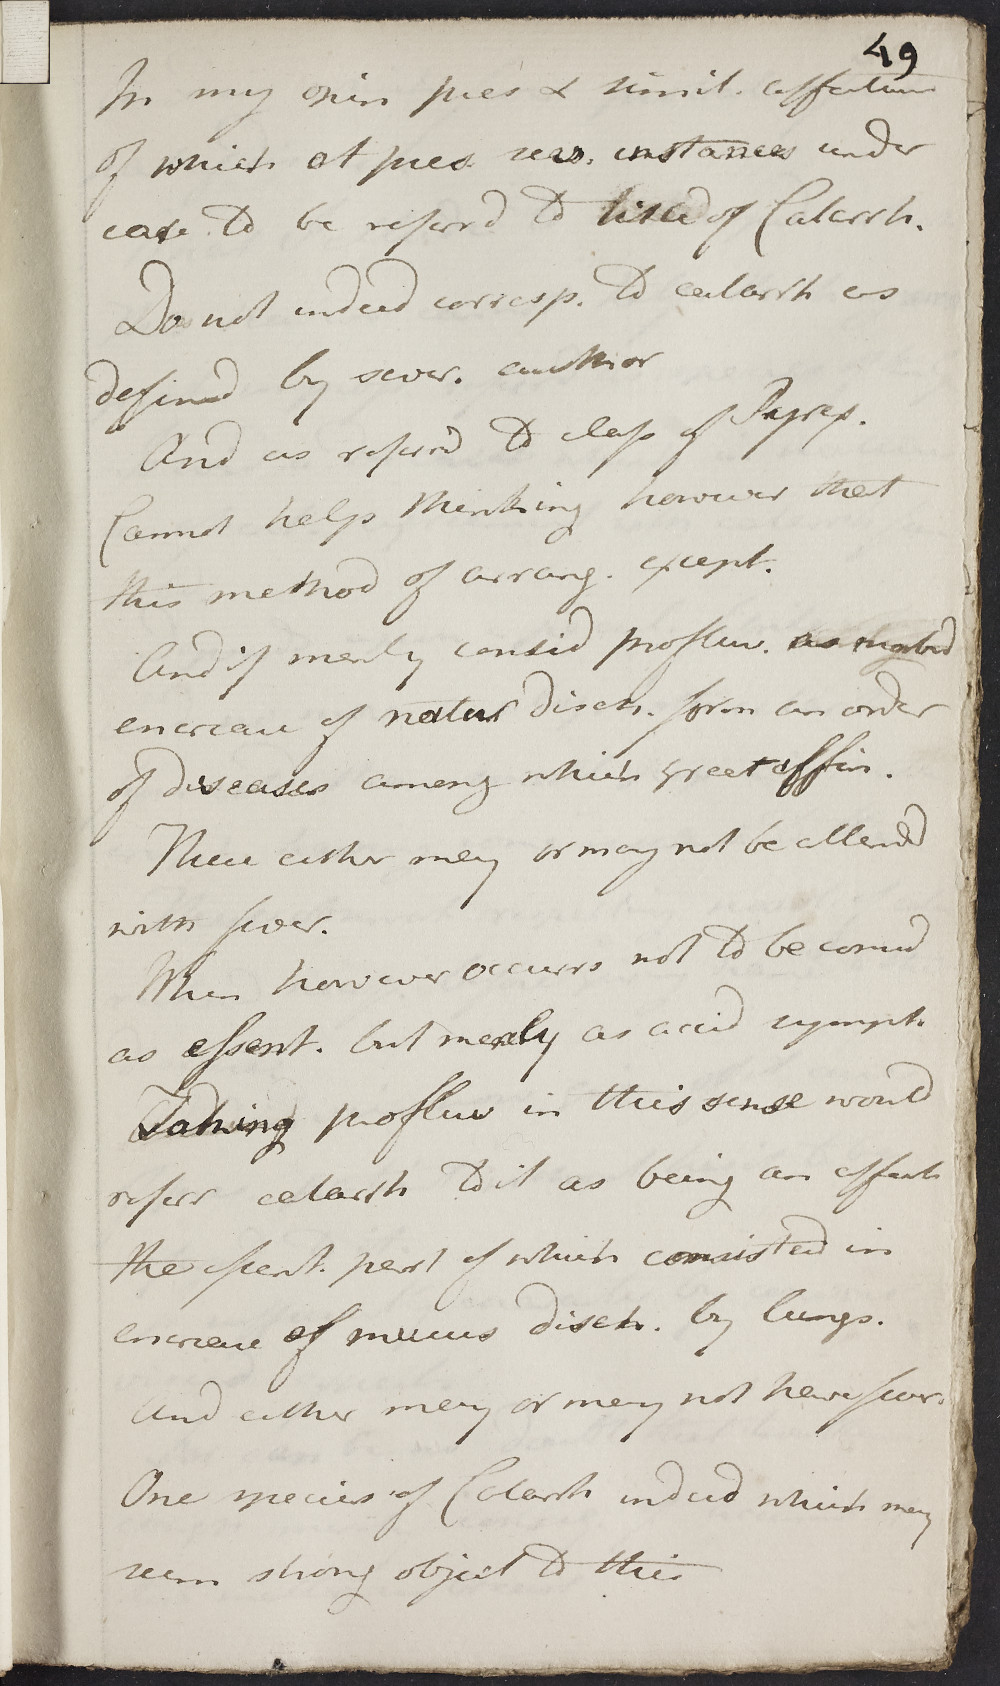 49
In my opin pres & simil. affections
of which at pres sev. instances under
care to be referd to title of Catarrh.
Do not indeed corresp. to catarrh as
defined by sever. author
And as referd to class of Pyrex.
Cannot help thinking however that
this method of arrang. except.
And if merely consid profluv. as morbid
encrease of natur disch. form an order
of diseases among which great affin.
These either may or may not be attend
with fever.
When however occurs not to be consid
as essent. but merely as accid sympt.
Taking profluv in this sense would
referr catarrh to it as being an affect
the essent. part of which consisted in
encrease of mucus disch. by lungs.
And either may or may not have fever.
One species of Catarrh indeed which may
seem strong object to this